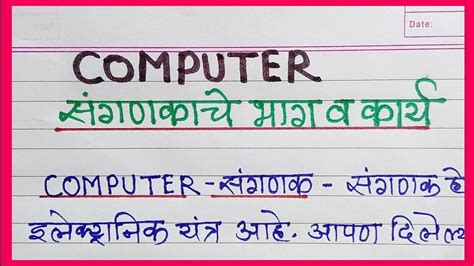 Date:
COMPUTER
संगणकाचे भाग व कार्य
COMPUTER - संगणक - संगणक हे
इलेक्ट्रानिक यंत्र आहे. आपण दिलेल्य